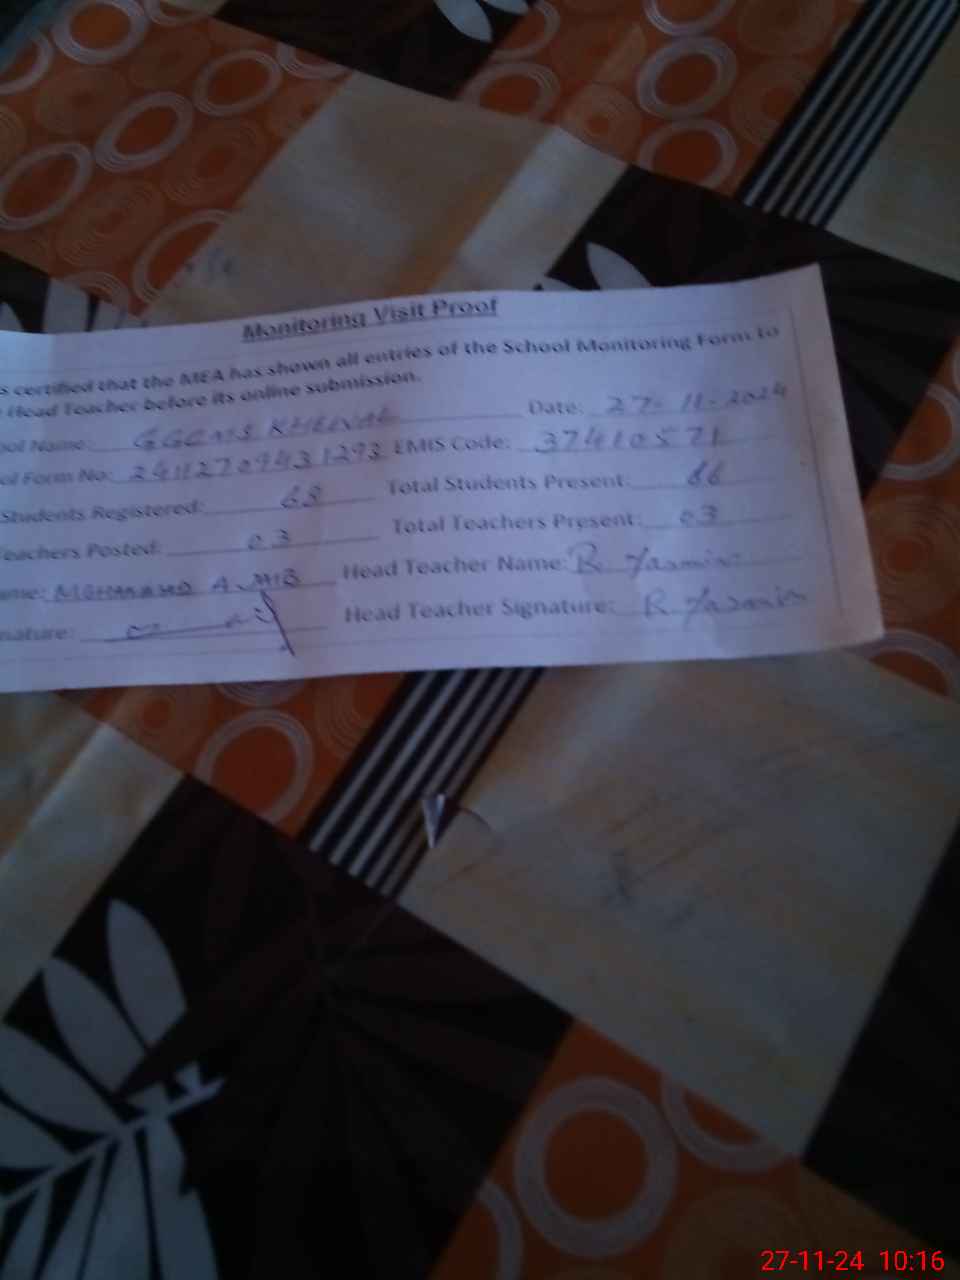 Monitoring Visit Proof
s certified that the MEA has shown all entries of the School Monitoring Form to
Head Teacher before its online submission.
ool Name: Date: 27-11-2024
ol Form No: 24112709431293 EMIS Code: 37410571
Students Registered: 68 Total Students Present: 66
eachers Posted: 03 Total Teachers Present: 03
ame: Head Teacher Name: R Yasmin
nature: Head Teacher Signature: R Yasmin
27-11-24 10:16